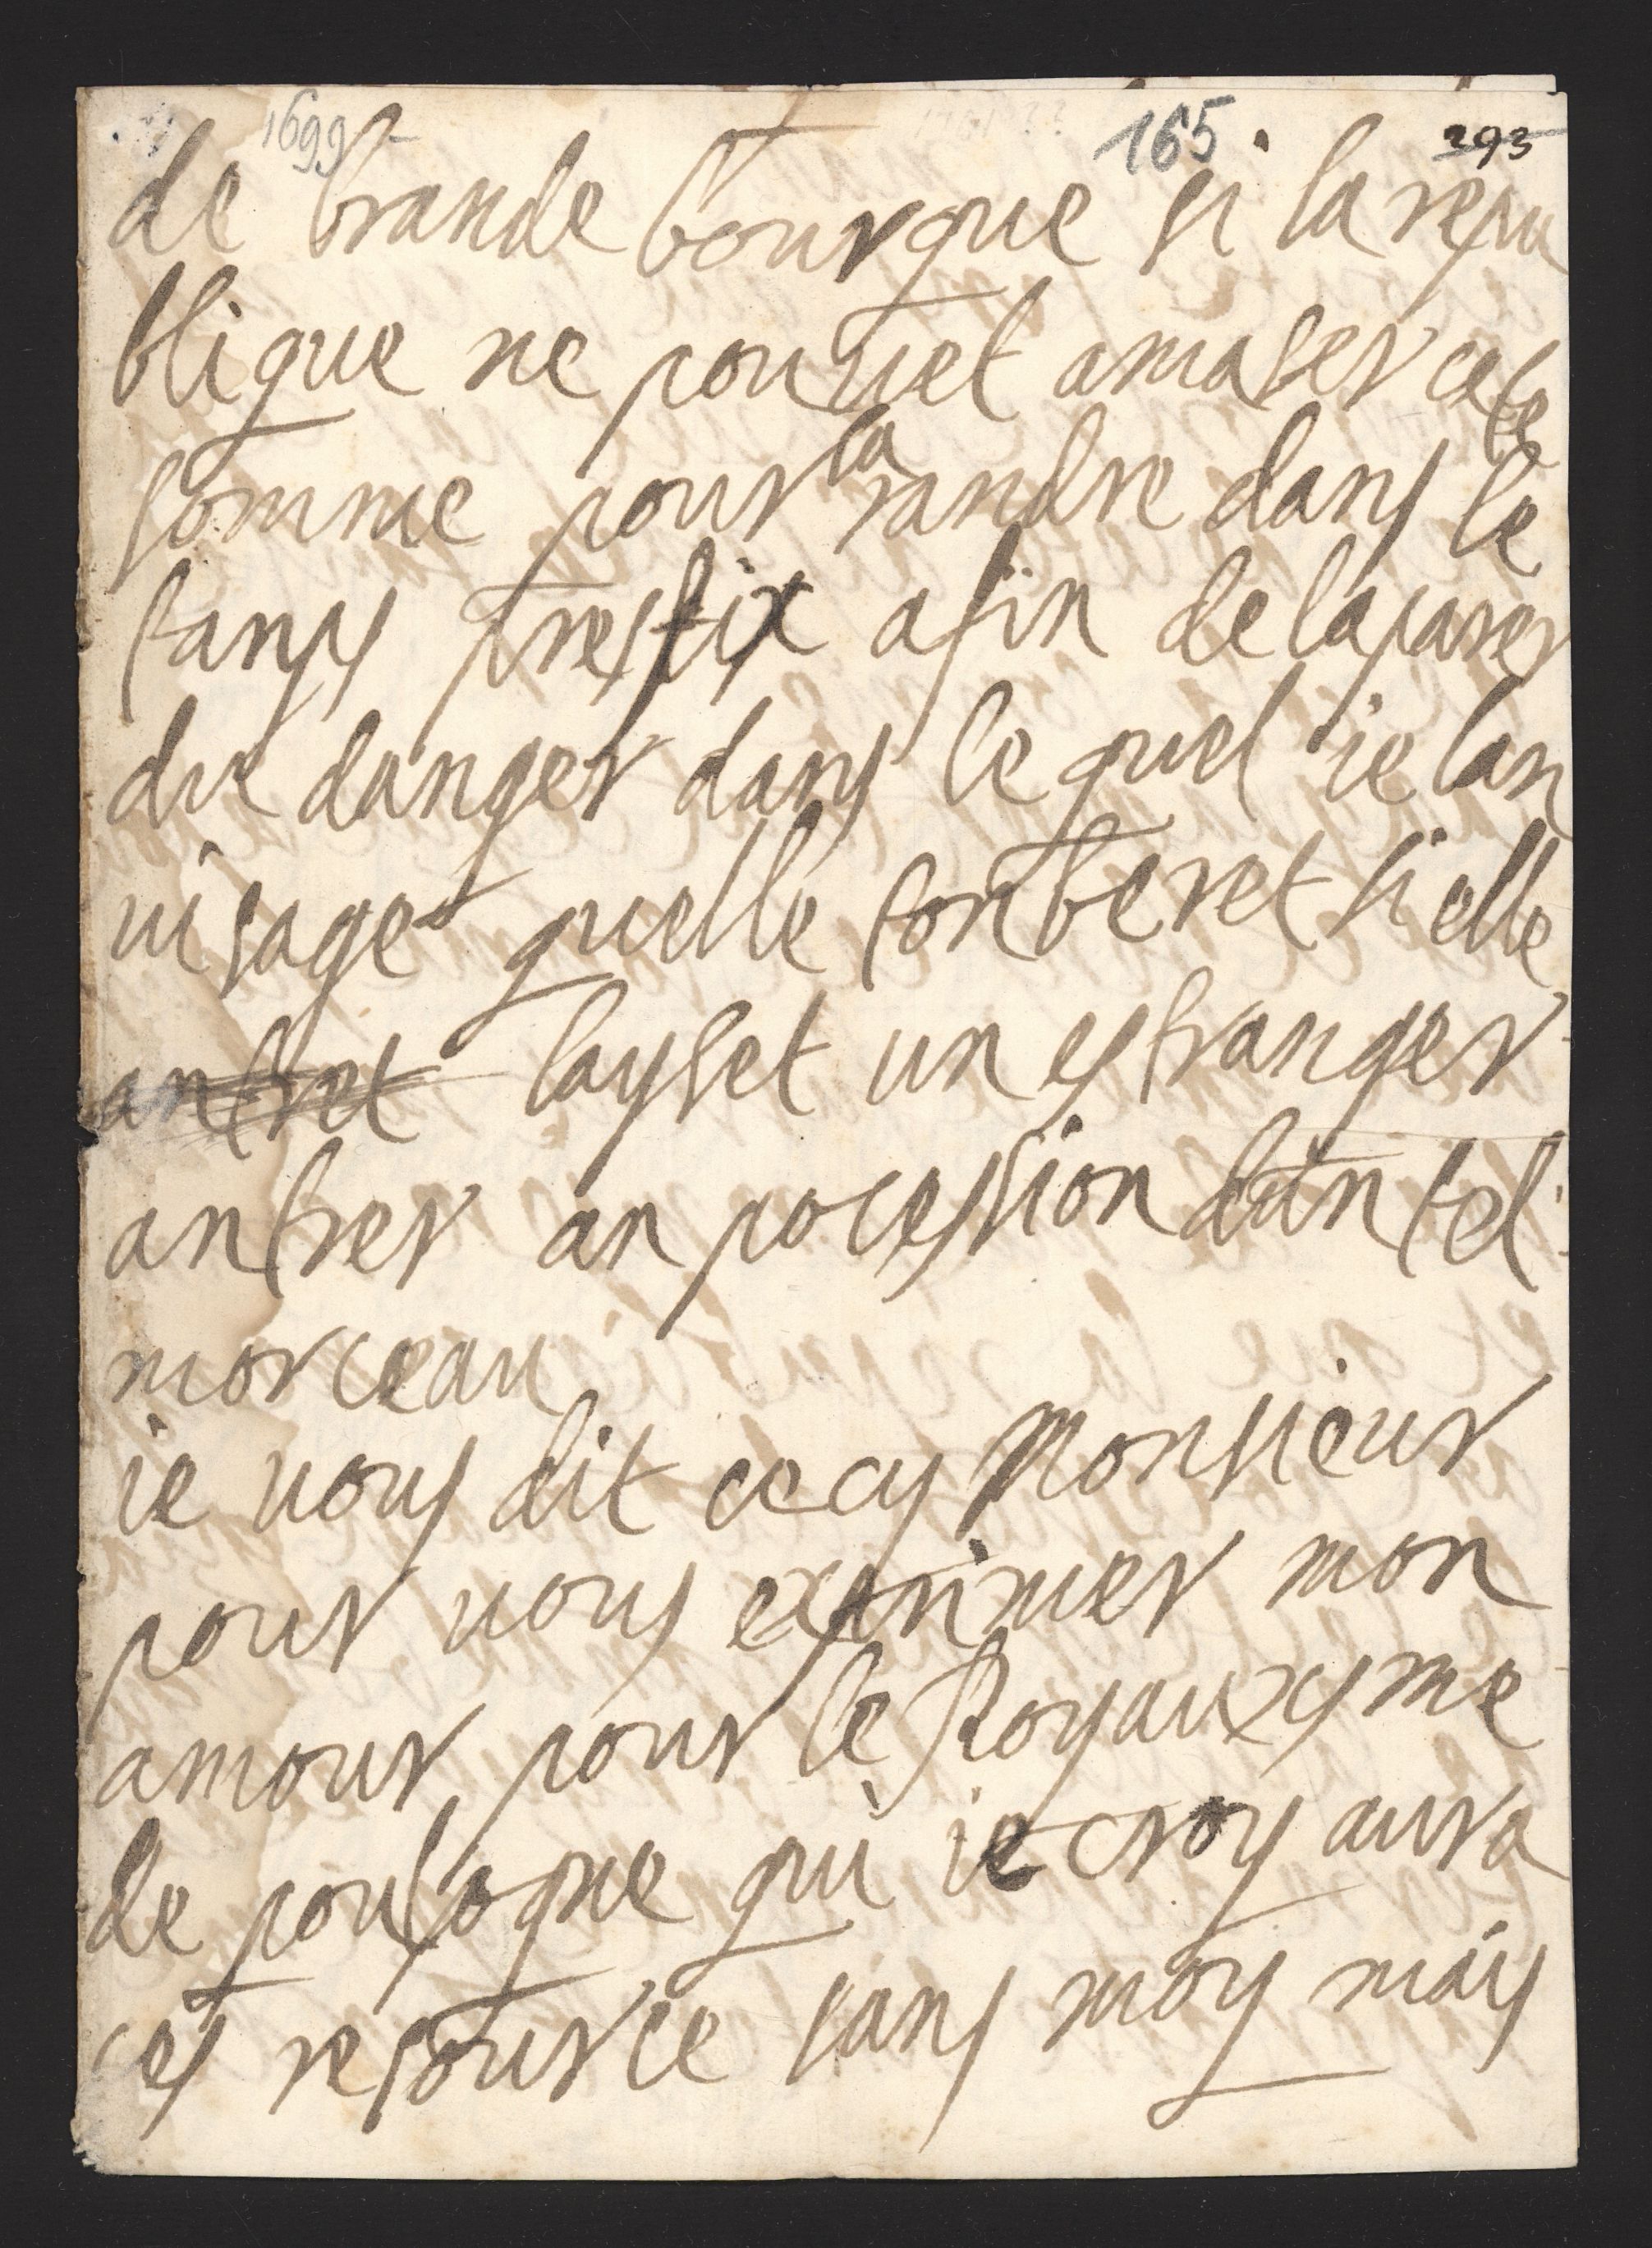 1699 165. 293
de brande bourgue si la repu
blique ne pouvet amaser cete
somme pour la randre dans le
tamps presfix afin de laparer
du danger dans le quel ie lan
visage quelle tonberet si elle
antret layset un estranger
antrer an pocession dun tel
morceau
ie vous dit cecy Monsieur
pour vous exprimer mon
amour pour le Royauxsme
de poulogne qui ie croy aura
ces resource sans moy mais